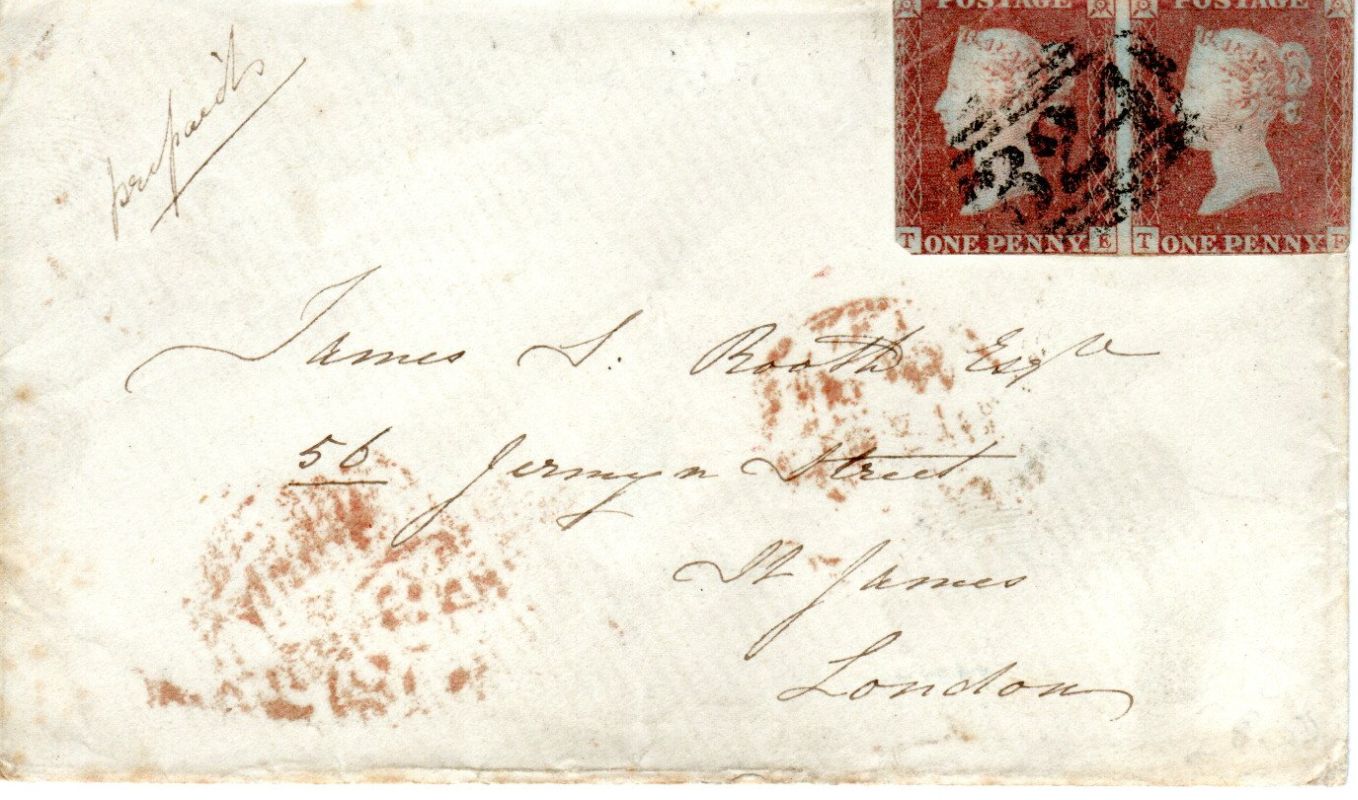 prepaid
POSTAGE POSTAGE
T ONE PENNY E T ONE PENNY F
James S. Booth Esqre
56 Jermyn Street
St James
London